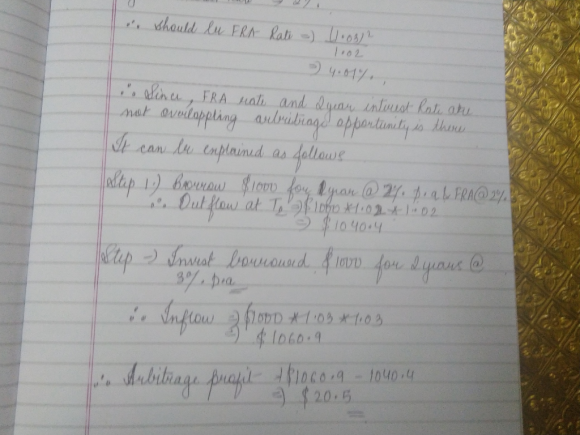 ∴ Should be FRA Rate => (1.03)²
1.02
=> 4.01%.
∴ Since, FRA rate and 2 year interest Rate are
not overlappling arbritiage opportunity is there
It can be explained as follows
Step 1:) Borrow $1000 for 1 year @ 2% p.a & FRA@2%
∴ Outflow at T₂ => $1000 * 1.02 * 1.02
=> $1040.4
Step => Invest borrowed $1000 for 2 years @
3% p.a
∴ Inflow => $1000 * 1.03 * 1.03
=> $1060.9
∴ Arbitrage profit => $1060.9 - 1040.4
=> $20.5